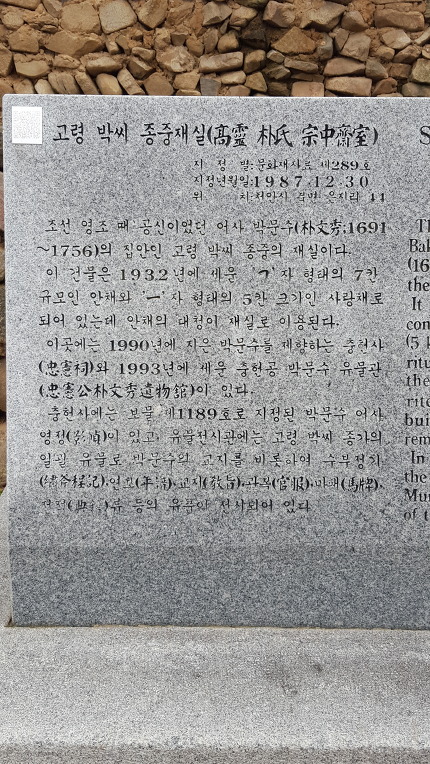 고령 박씨 종중재실(高靈 朴氏 宗中齋室)
지 정 별:문화재자료 제289호
지정년월일:1987.12.30
위 치:천안시 북면 은지리 44
조선 영조 때 공신이었던 어사 박문수(朴文秀;1691
~1756)의 집안인 고령 박씨 종중의 재실이다.
이 건물은 1932년에 세운 'ㄱ'자 형태의 7칸
규모인 안채와 'ㅡ'자 형태의 5칸 크기인 사랑채로
되어 있는데 안채의 대청이 재실로 이용된다.
이곳에는 1990년에 지은 박문수를 제향하는 충헌사
(忠憲祠)와 1993년에 세운 충헌공 박문수 유물관
(忠憲公朴文秀遺物館)이 있다.
충헌사에는 보물 제1189호로 지정된 박문수 어사
영정(影幀)이 있고, 유물전시관에는 고령 박씨 종가의
일괄 유물로 박문수의 교지를 비롯하여 수부정기
(繡斧程記),연보(年譜),교지(敎旨),관복(官服),마패(馬牌),
전적(典籍)류 등의 유품이 전시되어 있다
S
Th
Bak
(16
the
It
con
(5 k
ritu
the
rite
buil
rem
In
the
Mur
of t